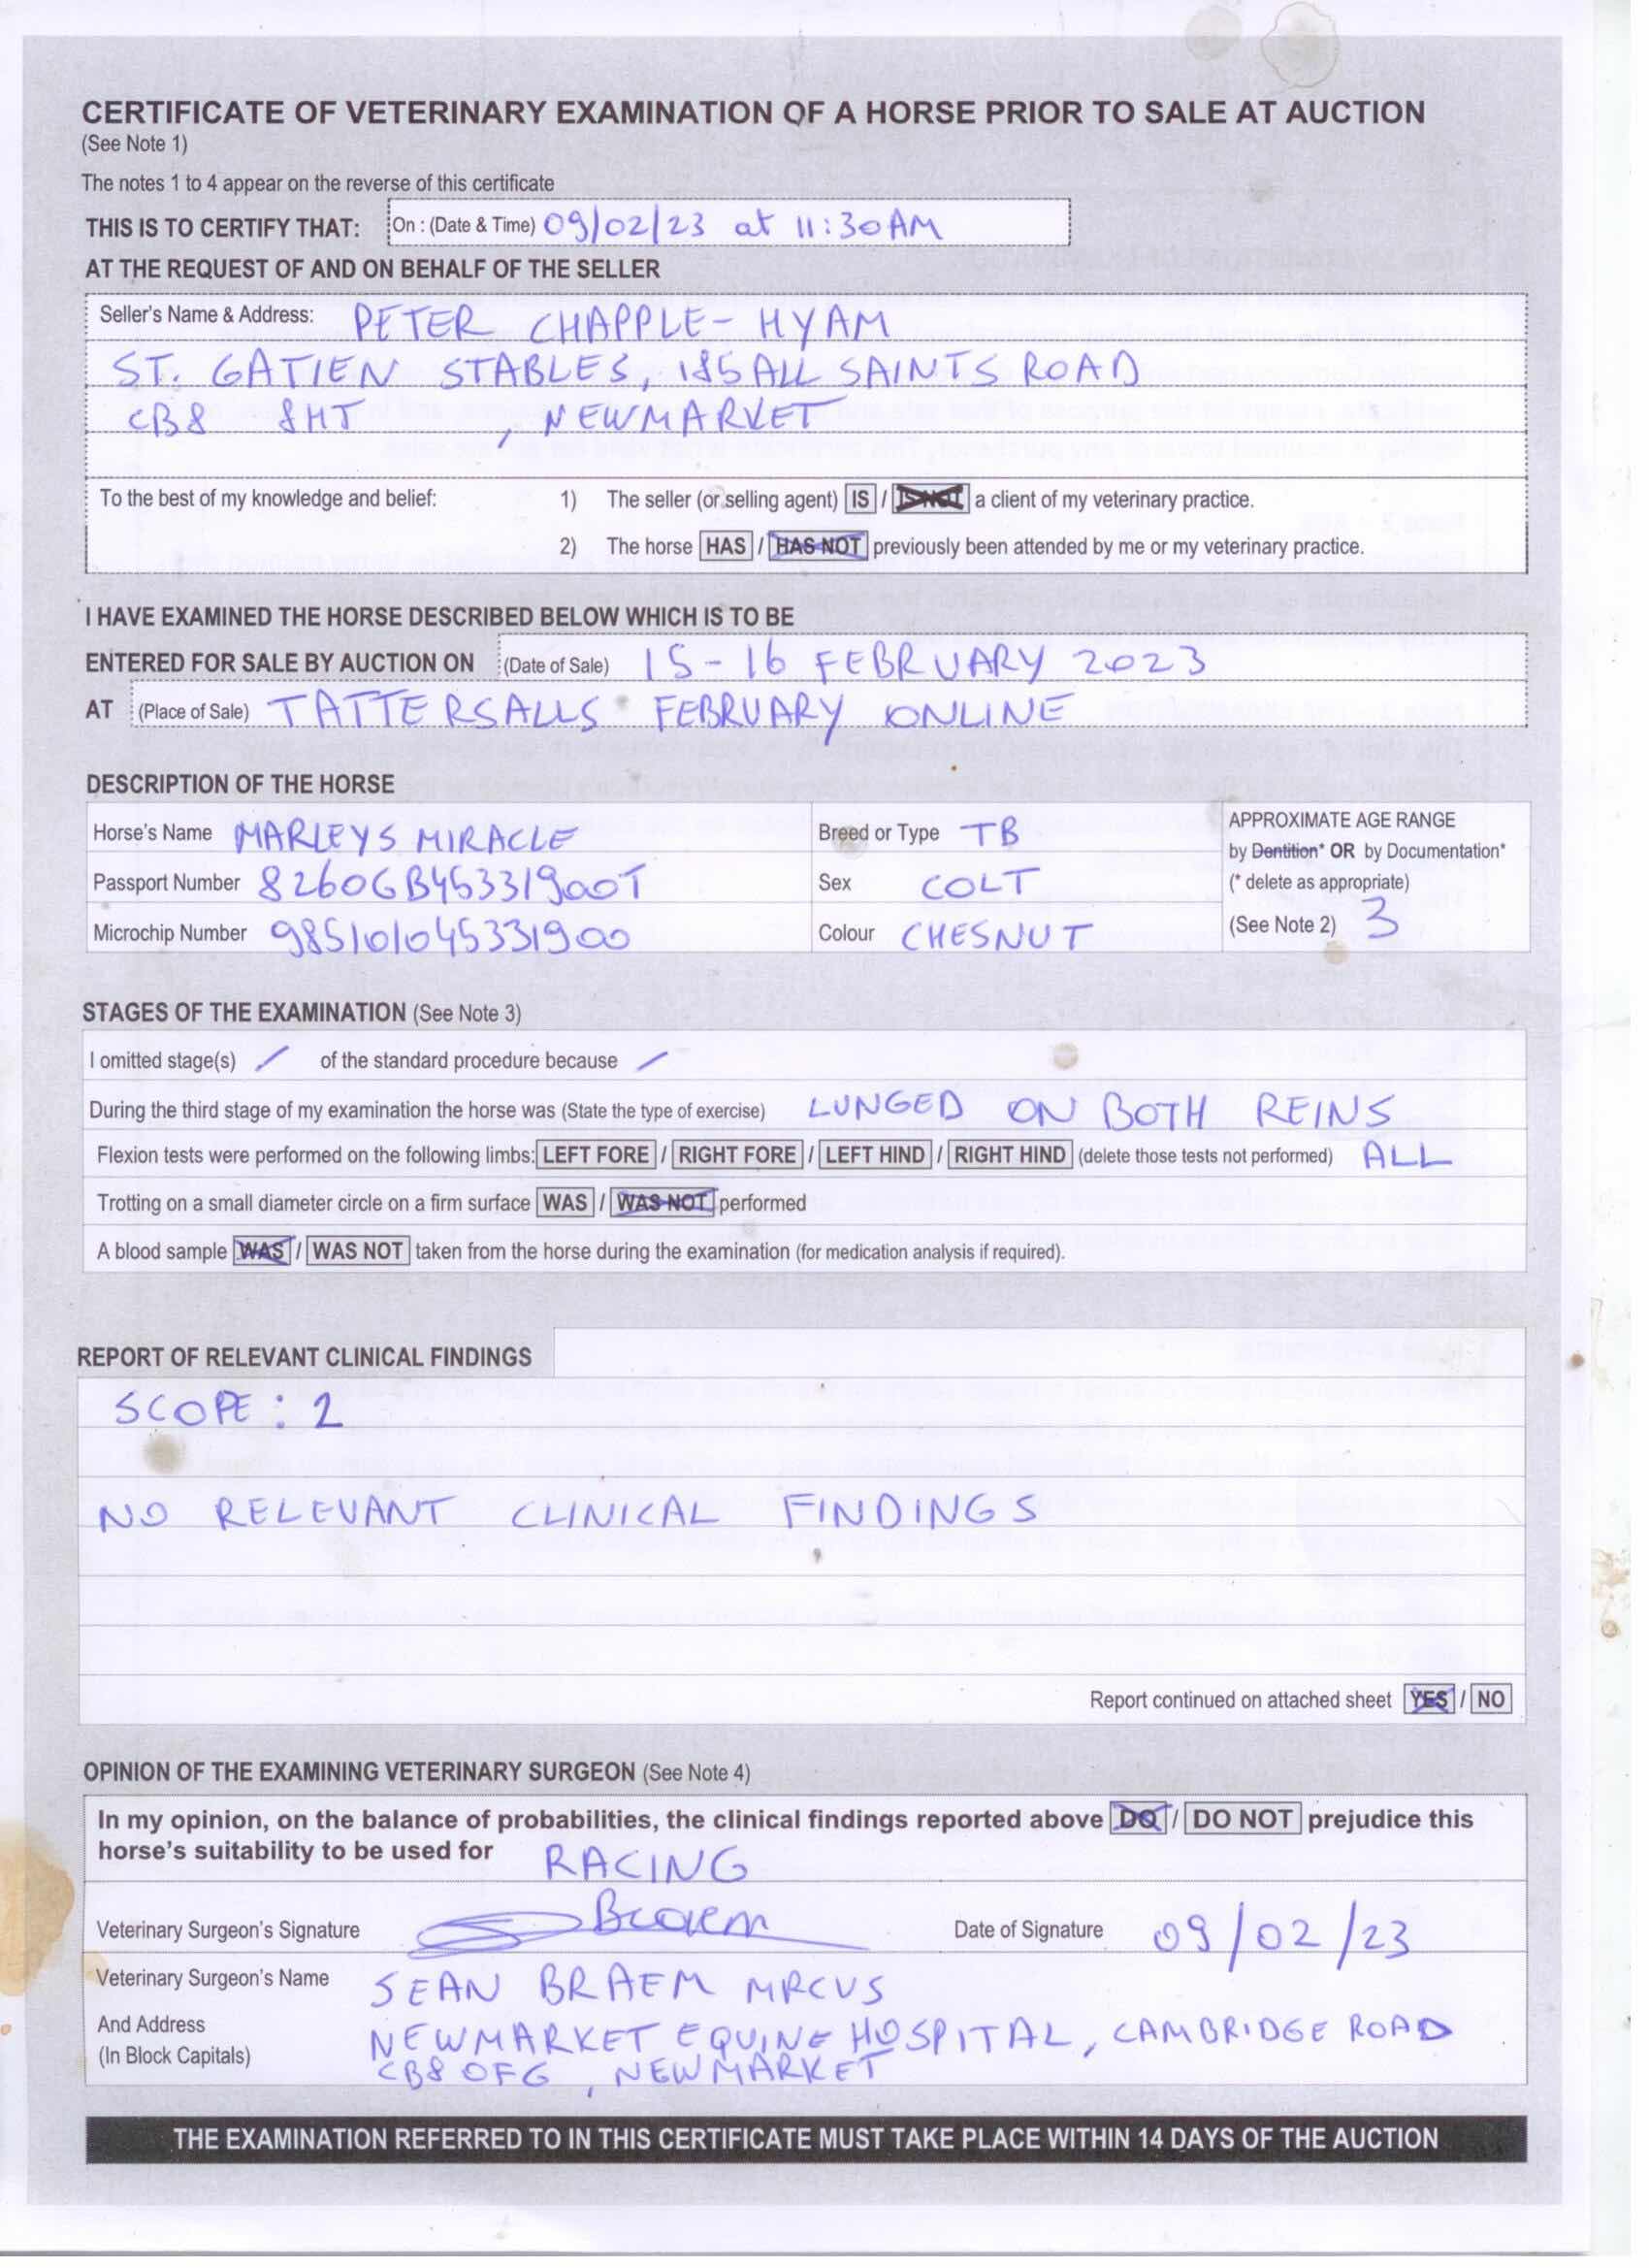 CERTIFICATE OF VETERINARY EXAMINATION OF A HORSE PRIOR TO SALE AT AUCTION
(See Note 1)
The notes 1 to 4 appear on the reverse of this certificate
THIS IS TO CERTIFY THAT: On : (Date & Time) 09/02/23 at 11:30AM
AT THE REQUEST OF AND ON BEHALF OF THE SELLER
Seller's Name & Address: PETER CHAPPLE-HYAM
ST. GATIEN STABLES, 185 ALL SAINTS ROAD
CB8 8HT , NEWMARKET
To the best of my knowledge and belief: 1) The seller (or selling agent) IS / IS NOT a client of my veterinary practice.
2) The horse HAS / HAS NOT previously been attended by me or my veterinary practice.
I HAVE EXAMINED THE HORSE DESCRIBED BELOW WHICH IS TO BE
ENTERED FOR SALE BY AUCTION ON (Date of Sale) 15-16 FEBRUARY 2023
AT (Place of Sale) TATTERSALLS FEBRUARY ONLINE
DESCRIPTION OF THE HORSE
Horse's Name MARLEYS MIRACLE Breed or Type TB APPROXIMATE AGE RANGE
by Dentition* OR by Documentation*
Passport Number 8260GB45331900T Sex COLT (* delete as appropriate)
Microchip Number 985101045331900 Colour CHESNUT (See Note 2) 3
STAGES OF THE EXAMINATION (See Note 3)
I omitted stage(s) / of the standard procedure because /
During the third stage of my examination the horse was (State the type of exercise) LUNGED ON BOTH REINS
Flexion tests were performed on the following limbs: LEFT FORE / RIGHT FORE / LEFT HIND / RIGHT HIND (delete those tests not performed) ALL
Trotting on a small diameter circle on a firm surface WAS / WAS NOT performed
A blood sample WAS / WAS NOT taken from the horse during the examination (for medication analysis if required).
REPORT OF RELEVANT CLINICAL FINDINGS
SCOPE : 2
NO RELEVANT CLINICAL FINDINGS
Report continued on attached sheet YES / NO
OPINION OF THE EXAMINING VETERINARY SURGEON (See Note 4)
In my opinion, on the balance of probabilities, the clinical findings reported above DO / DO NOT prejudice this
horse's suitability to be used for RACING
Veterinary Surgeon's Signature Braem Date of Signature 09/02/23
Veterinary Surgeon's Name SEAN BRAEM MRCVS
And Address NEWMARKET EQUINE HOSPITAL, CAMBRIDGE ROAD
(In Block Capitals) CB8 0FG , NEWMARKET
THE EXAMINATION REFERRED TO IN THIS CERTIFICATE MUST TAKE PLACE WITHIN 14 DAYS OF THE AUCTION